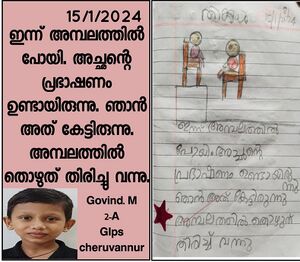 15/1/2024
ഇന്ന് അമ്പലത്തിൽ
പോയി. അച്ഛന്റെ
പ്രഭാഷണം
ഉണ്ടായിരുന്നു. ഞാൻ
അത് കേട്ടിരുന്നു.
അമ്പലത്തിൽ
തൊഴുത് തിരിച്ചു വന്നു.
Govind. M
2-A
Glps
cheruvannur
ഇന്ന് അമ്പലത്തിൽ
പോയി. അച്ഛന്റെ
പ്രഭാഷണം ഉണ്ടായിരുന്നു
ഞാൻ അത് കേട്ടിരുന്നു
അമ്പലത്തിൽ തൊഴുത്
തിരിച്ച് വന്നു